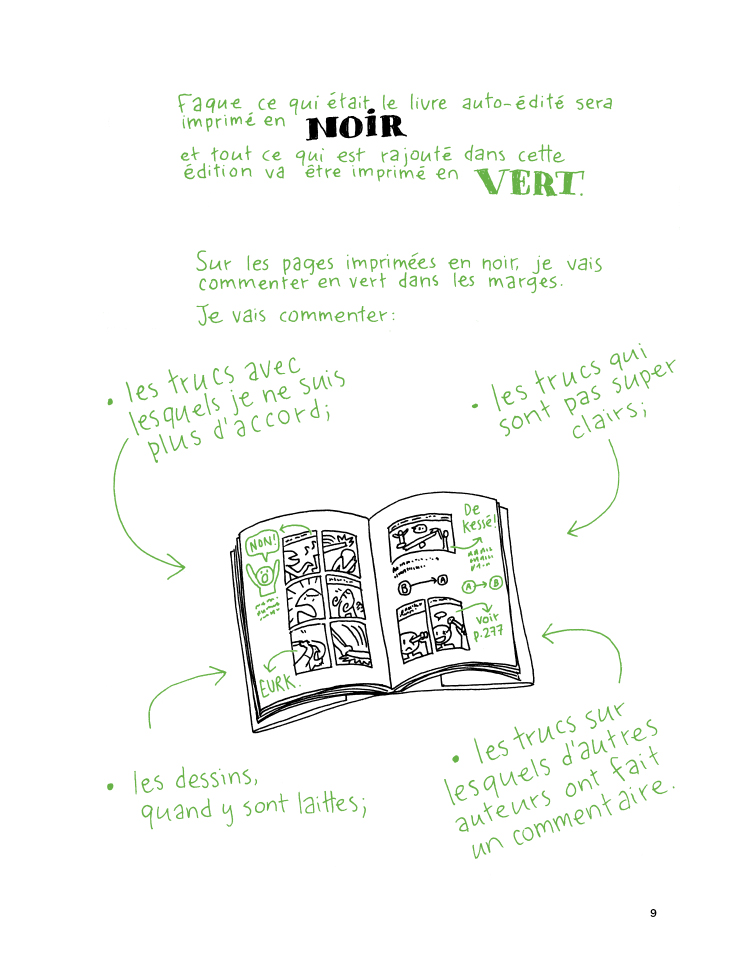 Faque ce qui était le livre auto-édité sera
imprimé en NOIR
et tout ce qui est rajouté dans cette
édition va être imprimé en VERT.
Sur les pages imprimées en noir, je vais
commenter en vert dans les marges.
Je vais commenter:
• les trucs avec
lesquels je ne suis
plus d'accord;
• les trucs qui
sont pas super
clairs;
NON!
EURK.
De
kessé!
B → A
A → B
voir
p.277
• les dessins,
quand y sont laittes;
• les trucs sur
lesquels d'autres
auteurs ont fait
un commentaire.
9